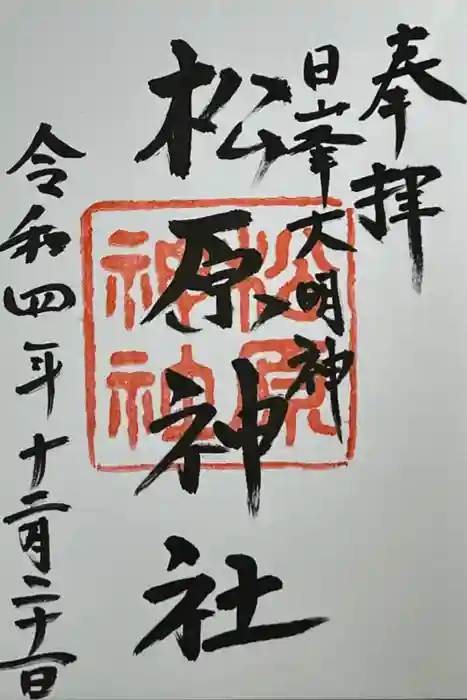 奉拝
日峯大明神
松原神社
松原神社
令和四年十二月二十一日